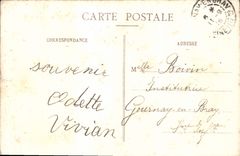 CARTE POSTALE
CORRESPONDANCE
ADRESSE
souvenir
Odette
Vivian
Mlle Boivin
Institutrice
Gournay-en-Bray